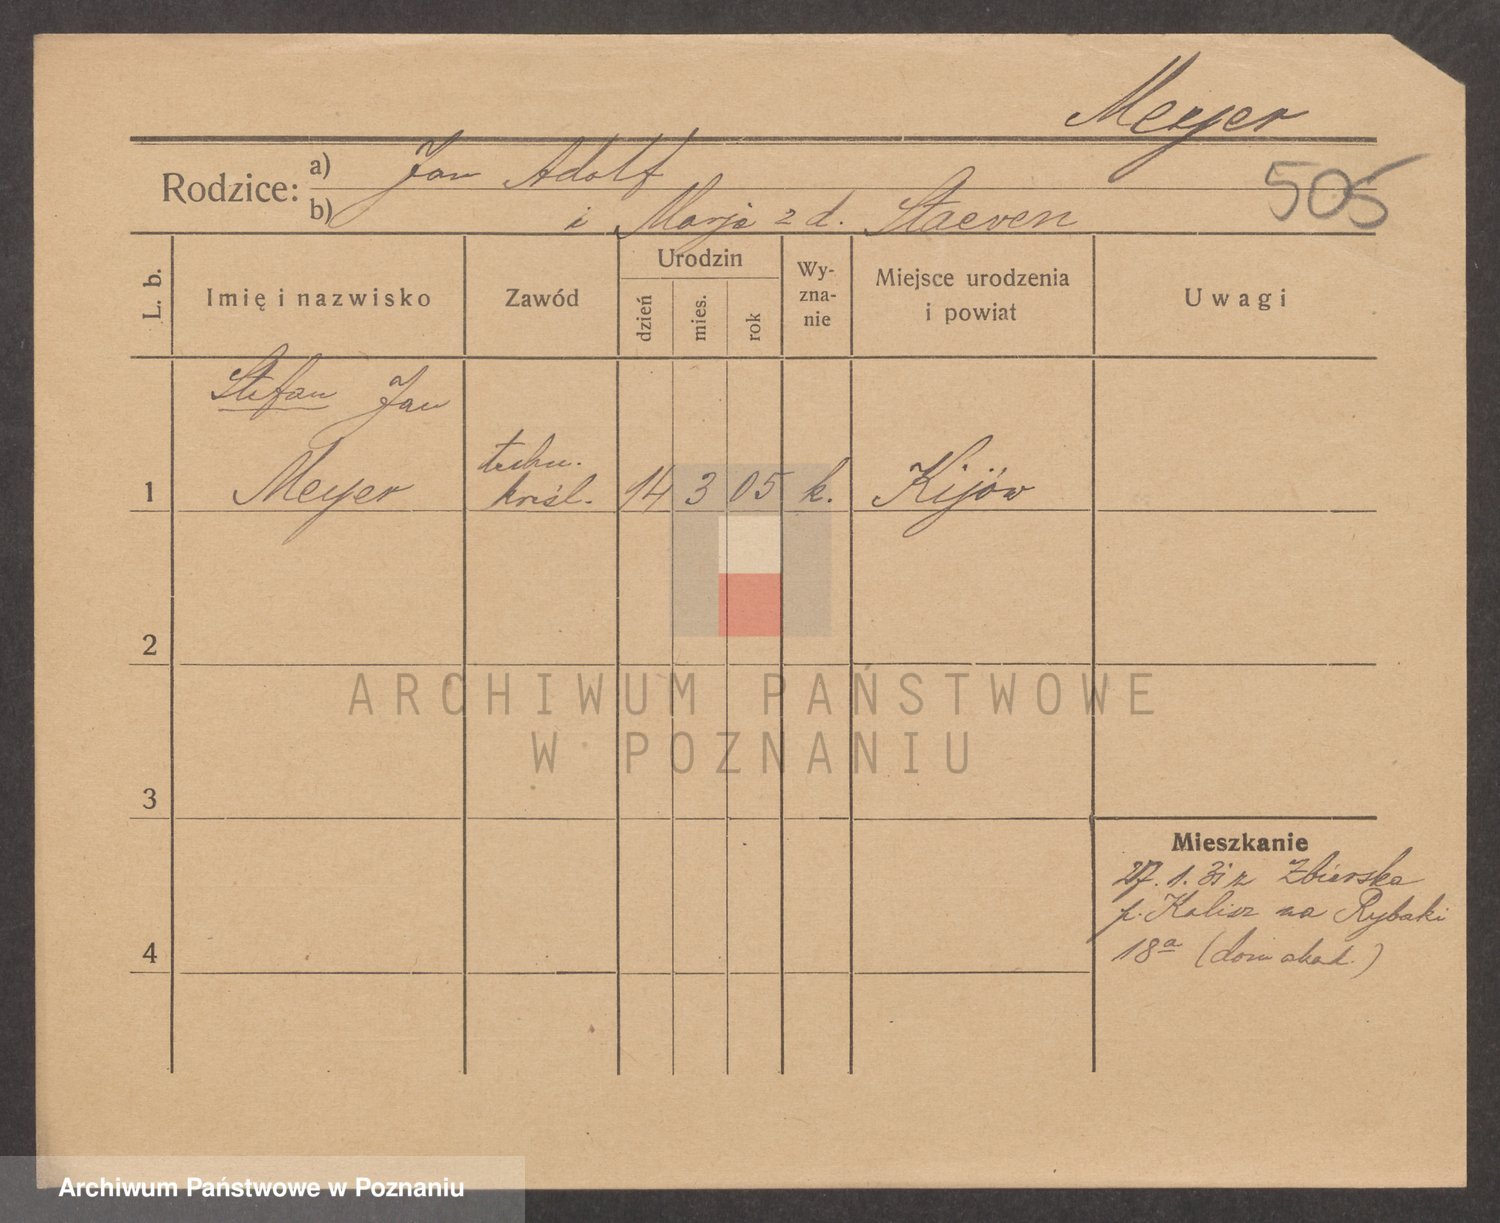 Meyer
505
Rodzice:
a) Jan Adolf
b) i Marja z d. Staeven
L. b.
Imię i nazwisko
Zawód
Urodzin
dzień
mies.
rok
Wy-
zna-
nie
Miejsce urodzenia
i powiat
Uwagi
Stefan Jan
1 Meyer
techn.
kreśl.
14 3 05 k. Kijów
2
3
4
Mieszkanie
27. 1. 31 z Zbierska
p. Kalisz na Rybaki
18a (dom akad.)
ARCHIWUM PAŃSTWOWE
W POZNANIU
Archiwum Państwowe w Poznaniu